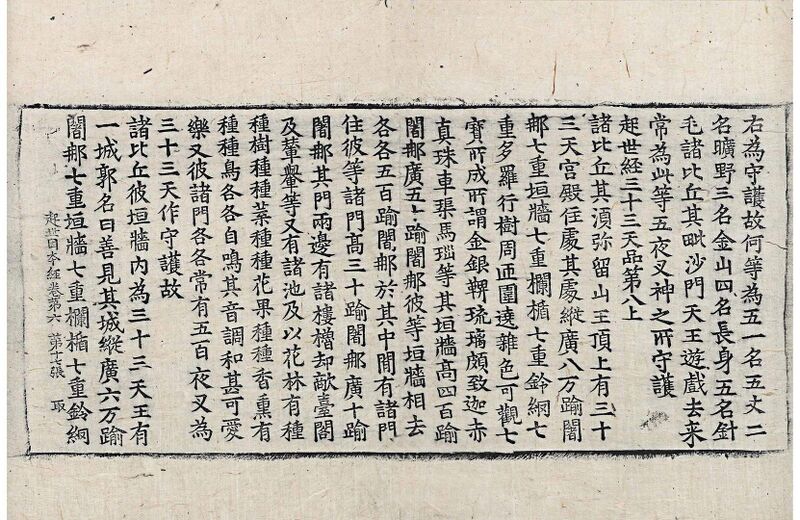 右為守護故何等為五一名五丈二
名曠野三名金山四名長身五名針
毛諸比丘其毗沙門天王遊戲去来
常為此等五夜叉神之所守護
起世經三十三天品第八上
諸比丘其湏弥留山王頂上有三十
三天宮殿住處其處縱廣八万踰闍
那七重垣牆七重欄楯七重鈴網七
重多羅行樹周匝圍遶雜色可觀七
寶所成所謂金銀鞞琉璃頗致迦赤
真珠車𤦲馬瑙等其垣牆高四百踰
闍那廣五十踰闍那彼等垣牆相去
各各五百踰闍那於其中間有諸門
住彼等諸門高三十踰闍那廣十踰
闍那其門兩邊有諸樓櫓却敵臺閣
及輦轝等又有諸池及以花林有種
種樹種種葉種種花果種種香熏有
種種鳥各各自鳴其音調和甚可愛
樂又彼諸門各各常有五百夜叉為
三十三天作守護故
諸比丘彼垣牆內為三十三天王有
一城郭名曰善見其城縱廣六万踰
闍那七重垣牆七重欄楯七重鈴網
起世因本經卷第六 第十七張 取